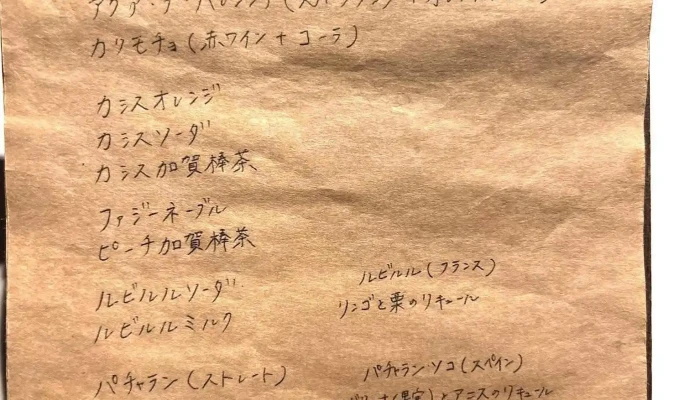 アグア・デ・バレンシア(
カリモチョ(赤ワイン+コーラ)
カシスオレンジ
カシスソーダ
カシス加賀棒茶
ファジーネーブル
ピーチ加賀棒茶
ルビルル(フランス)
ルビルルソーダ
リンゴと栗のリキュール
ルビルルミルク
パチャラン・ソコ(スペイン)
パチャラン(ストレート)
とアニスのリキュール